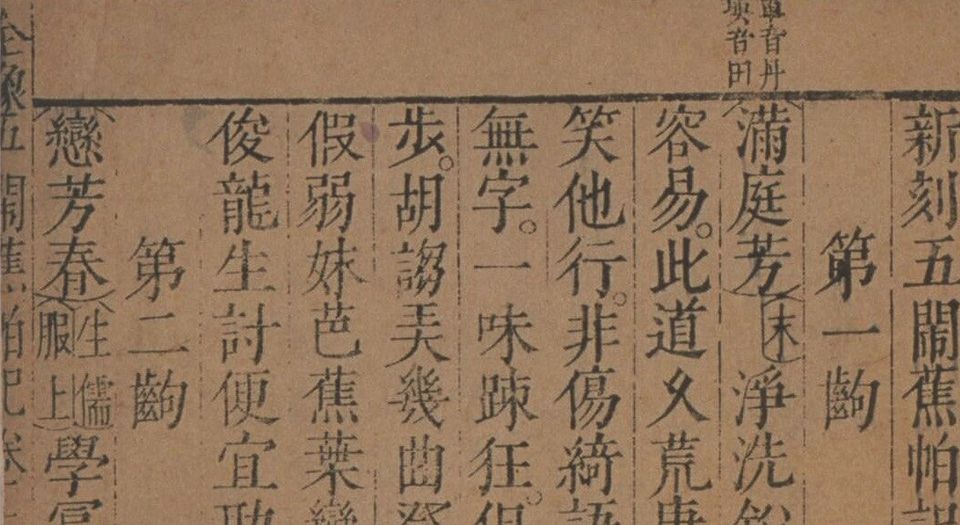 音丹
音田
新刻五鬧蕉帕記
第一齣
滿庭芳(末)淨洗鉛
容易。此道久荒唐
笑他行。非傷綺語
無字。一味踈狂。但
步。胡謅羙幾曲
假弱妹芭蕉葉變
俊龍生討便宜
第二齣
戀芳春(生儒服上)學
全像五鬧蕉帕記卷